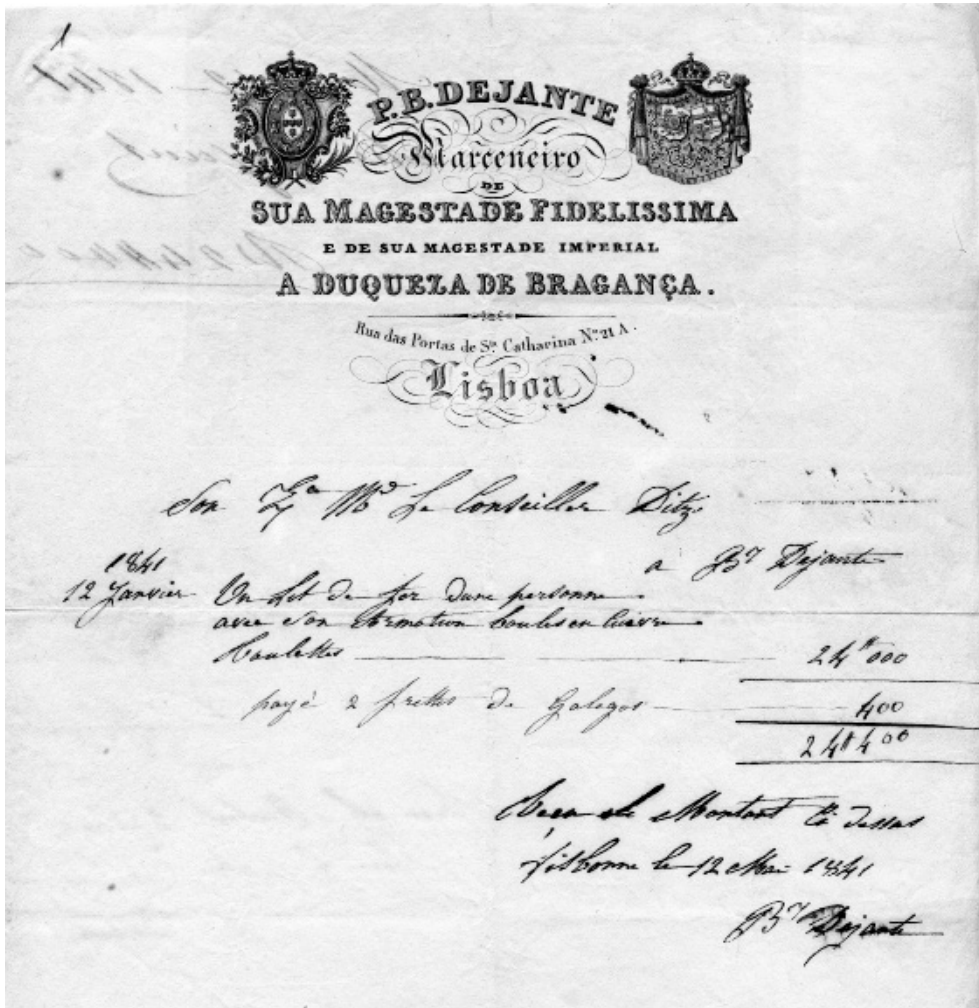 P. B. DEJANTE
Marceneiro
DE
SUA MAGESTADE FIDELISSIMA
E DE SUA MAGESTADE IMPERIAL
A DUQUEZA DE BRAGANÇA.
Rua das Portas de Sta. Catharina No. 21 A.
Lisboa
Son Le Conseiller Ditz
a Bd Dejante
1841
12 Janvier Un Lit de fer dune personne
avec son boules en Cuivre
Roulettes 24$000
payé 2 frettes de Galegos 400
24$400
Montant Ci dessus
Lisbonne le 12 Mai 1841
Bd Dejante